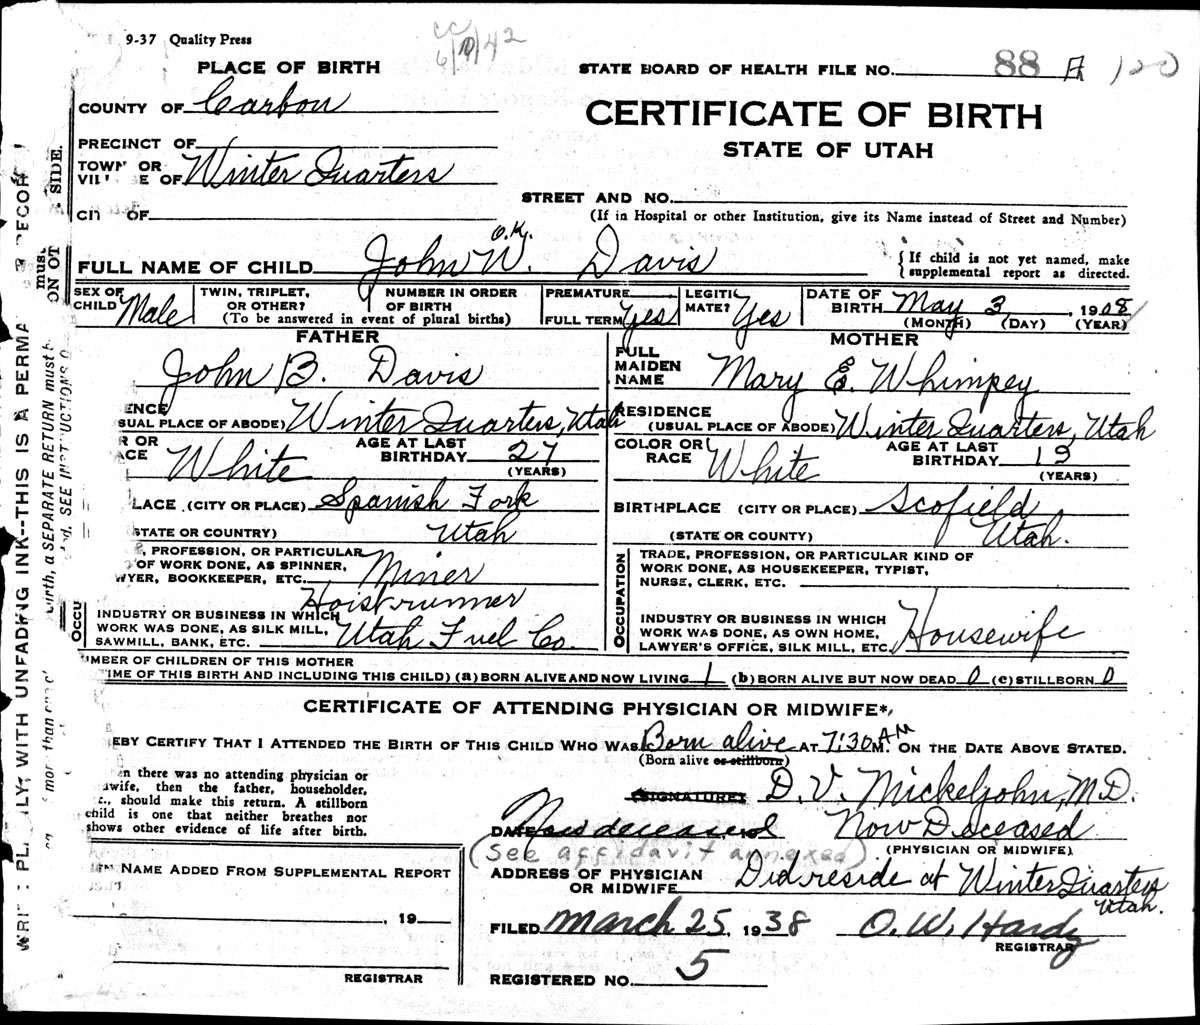 9-37 Quality Press
CC
6/10/42
PLACE OF BIRTH
STATE BOARD OF HEALTH FILE NO. 88 A 120
COUNTY OF Carbon
CERTIFICATE OF BIRTH
STATE OF UTAH
PRECINCT OF
TOWN OR
VIL E OF Winter Quarters
STREET AND NO.
(If in Hospital or other Institution, give its Name instead of Street and Number)
CIT OF
O.K.
FULL NAME OF CHILD John W. Davis
{ If child is not yet named, make
supplemental report as directed.
SEX OF
CHILD Male
TWIN, TRIPLET,
OR OTHER?
NUMBER IN ORDER
OF BIRTH
(To be answered in event of plural births)
PREMATURE
FULL TERM Yes
LEGITI
MATE? Yes
DATE OF
BIRTH May 3, 1908
(MONTH) (DAY) (YEAR)
FATHER
John B. Davis
ENCE
SUAL PLACE OF ABODE) Winter Quarters, Utah
R OR
ACE White
AGE AT LAST
BIRTHDAY 27
(YEARS)
LACE (CITY OR PLACE) Spanish Fork
STATE OR COUNTRY) Utah
, PROFESSION, OR PARTICULAR
OF WORK DONE, AS SPINNER,
WYER, BOOKKEEPER, ETC. Miner
Hoistrunner
OCCU
INDUSTRY OR BUSINESS IN WHICH
WORK WAS DONE, AS SILK MILL,
SAWMILL, BANK, ETC. Utah Fuel Co.
MOTHER
FULL
MAIDEN
NAME Mary E. Whimpey
RESIDENCE
(USUAL PLACE OF ABODE) Winter Quarters, Utah
COLOR OR
RACE White
AGE AT LAST
BIRTHDAY 19
(YEARS)
BIRTHPLACE (CITY OR PLACE) Scofield
(STATE OR COUNTY) Utah.
OCCUPATION
TRADE, PROFESSION, OR PARTICULAR KIND OF
WORK DONE, AS HOUSEKEEPER, TYPIST,
NURSE, CLERK, ETC.
INDUSTRY OR BUSINESS IN WHICH
WORK WAS DONE, AS OWN HOME,
LAWYER'S OFFICE, SILK MILL, ETC. Housewife
UMBER OF CHILDREN OF THIS MOTHER
TIME OF THIS BIRTH AND INCLUDING THIS CHILD) (a) BORN ALIVE AND NOW LIVING 1 (b) BORN ALIVE BUT NOW DEAD 0 (c) STILLBORN 0
CERTIFICATE OF ATTENDING PHYSICIAN OR MIDWIFE*
EBY CERTIFY THAT I ATTENDED THE BIRTH OF THIS CHILD WHO WAS Born alive AT 7:30 AM M. ON THE DATE ABOVE STATED.
(Born alive or stillborn)
en there was no attending physician or
dwife, then the father, householder,
c., should make this return. A stillborn
child is one that neither breathes nor
shows other evidence of life after birth.
(SIGNATURE) D. V. Mickeljohn, M.D.
DATE Now deceased Now Deceased
(PHYSICIAN OR MIDWIFE)
(See affidavit annexed)
ADDRESS OF PHYSICIAN
OR MIDWIFE Did reside at Winter Quarters
Utah.
NAME ADDED FROM SUPPLEMENTAL REPORT
, 19
REGISTRAR
FILED March 25, 1938 O. W. Hardy
REGISTRAR
REGISTERED NO. 5
PL LY, WITH UNFADING INK--THIS IS A PERMA RECOR
more than one
birth, a SEPARATE RETURN must b
SEE INSTRUCTIONS O
must
ON OT
SIDE.